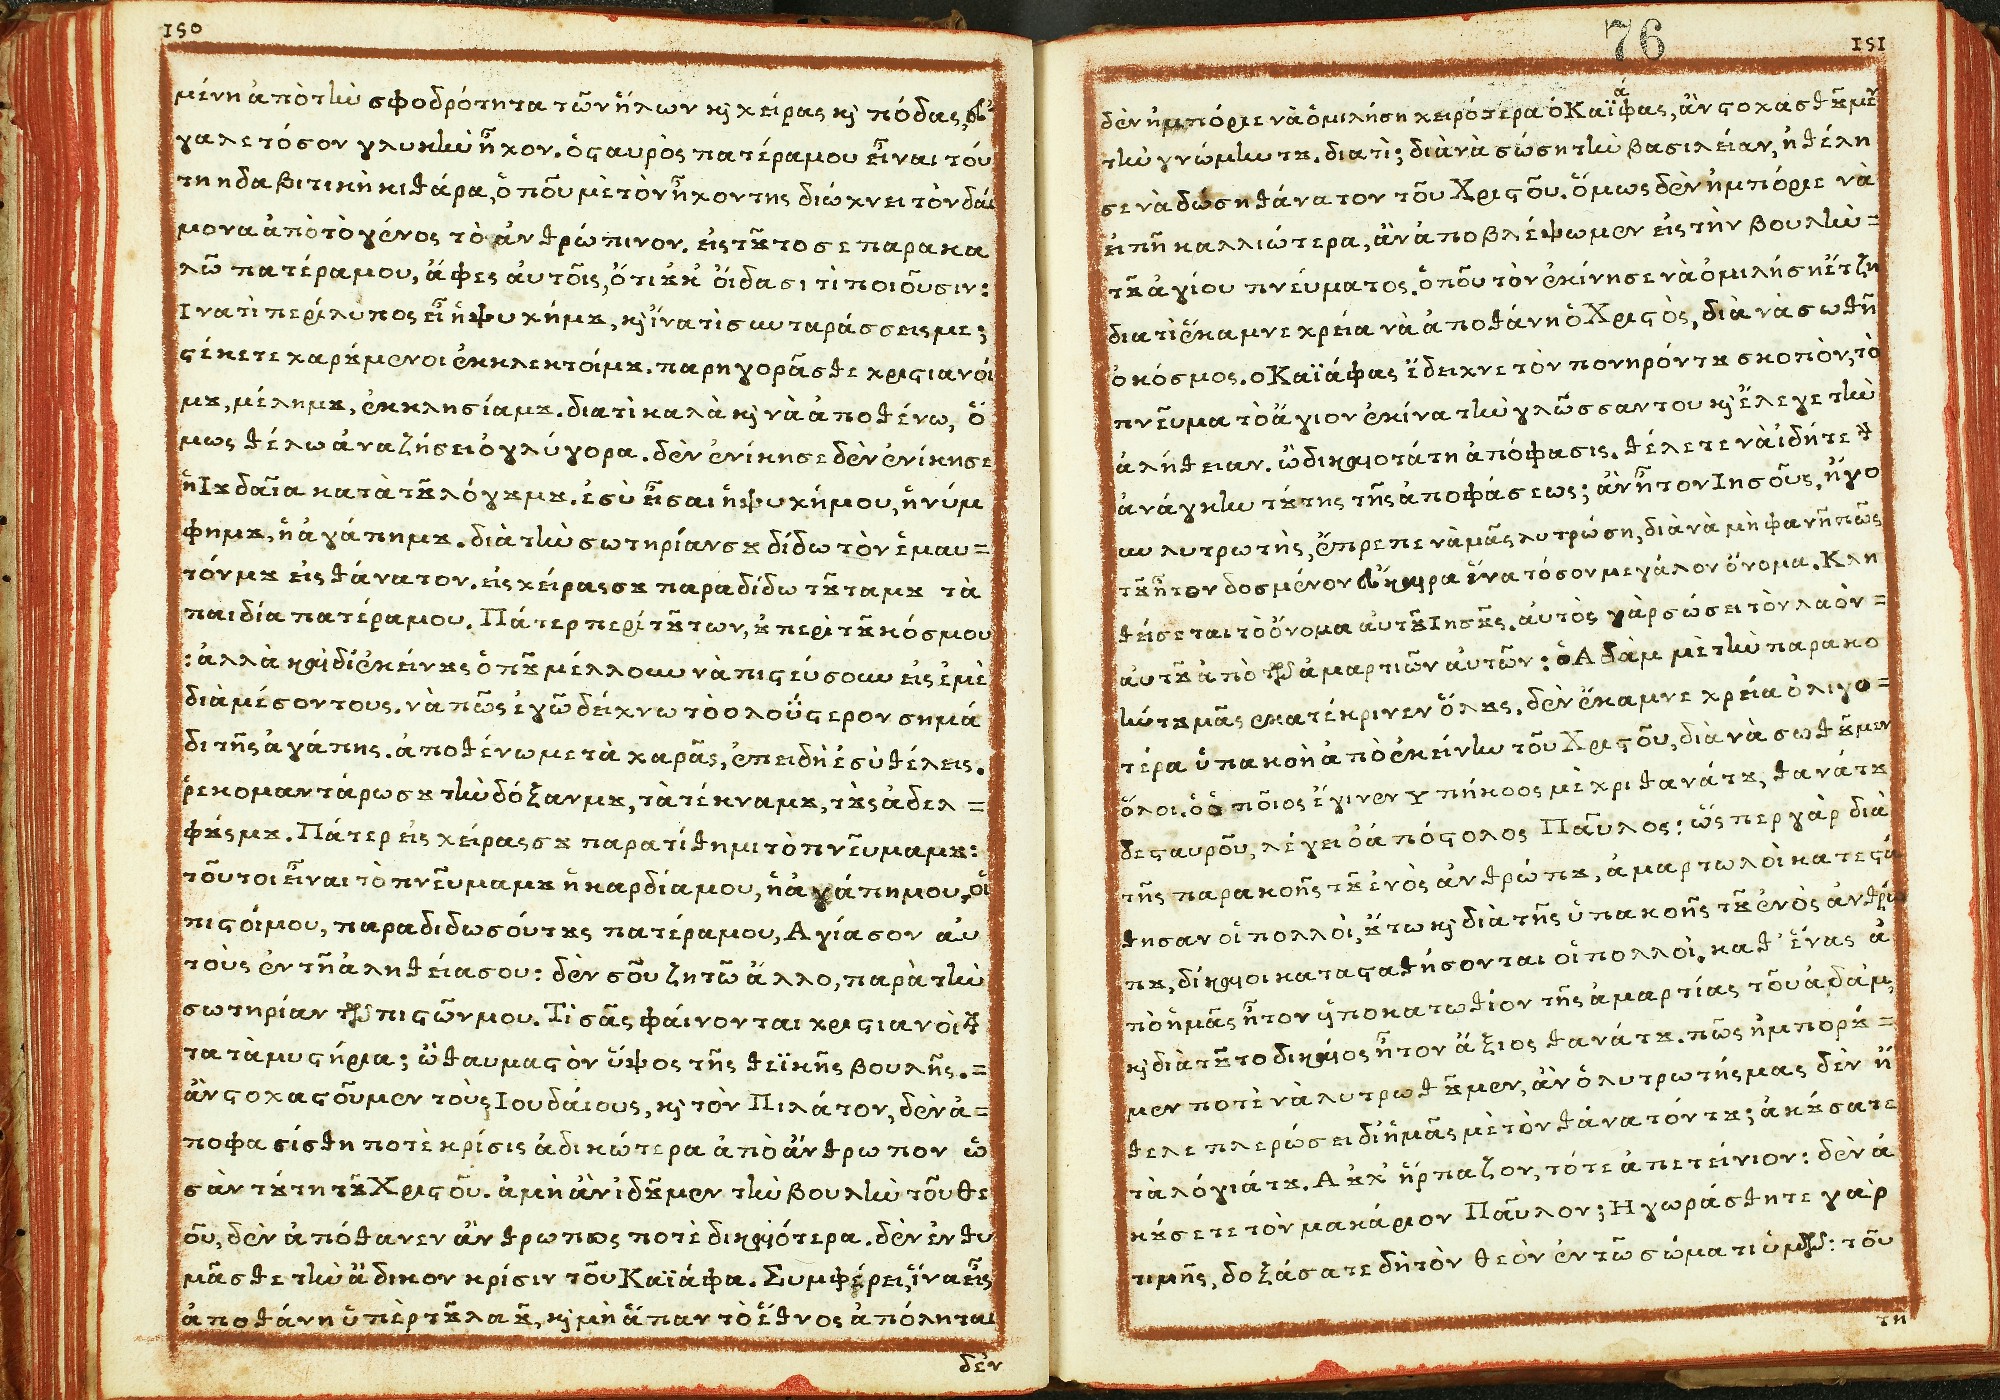 150
μένη ἀπὸ τὴν σφοδρότητα τῶν ἥλων κὶ χείρας κὶ πόδας, ἔβ
γαλε τόσον γλυκὺν ἦχον. ὁ ςαυρὸς πατέραμου εἶναι τού
τη η δαβιτικὴ κιθάρα, ὁ ποῦ μὲ τὸν ἦχον της διώχνει τὸν δαί
μονα ἀπὸ τὸ γένος τὸ ἀνθρώπινον. εἰς τȣ͂το σε παρακα
λῶ πατέραμου, ἄφες ἀυτοῖς, ὅτι ȣ̓κ ὄιδασι τὶ ποιοῦσιν:
Ινατὶ περίλυπος εἶ ἡ ψυχήμȣ, κὶ ἵνατὶ συνταράσσεις με;
ςέκετε χαρȣ́μενοι ἐκκλεκτοίμȣ. παρηγορᾶσθε χριςιανοί
μȣ, μέλημȣ, ἐκκλησίαμȣ. διατὶ καλὰ κὶ νὰ ἀποθένω, ὅ
μως θέλω ἀναζήσει ὀγλύγορα. δὲν ἐνίκησε δὲν ἐνίκησε
ἡ Ιȣδαῖα κατὰ τȣ͂ λόγȣμȣ. ἐσὺ εἶσαι ἡ ψυχήμου, ἡ νύμ
φημȣ, ἡ ἀγάπημȣ. διὰ τὴν σωτηρίανσȣ δίδω τὸν ἐμαυ=
τόνμȣ εἰς θάνατον. εἰς χείραςσȣ παραδίδω τȣ͂ταμȣ τὰ
παιδία πατέραμου. Πάτερ περὶ τȣ́των, ȣ̓ περὶ τȣ͂ κόσμου
: ἀλλὰ καὶ δι ἐκείνȣς ὁ πȣ͂ μέλλουν νὰ πιςεύσουν εἰς ἐμὲ
διὰ μέσον τους. νὰ πῶς ἐγῶ δείχνω τὸ ολοΰςερον σημά
δι τῆς ἀγάπης. ἀποθένω μετὰ χαρᾶς, ἐπειδὴ ἐσὺ θέλεις.
ῥεκομαντάρωσȣ τὴν δόξανμȣ, τὰ τέκναμȣ, τȣ̀ς ἀδελ=
φȣ́ςμȣ. Πάτερ εἰς χείραςσȣ παρατίθημι τὸ πνεῦμαμȣ:
τοῦτοι εἶναι τὸ πνεῦμαμȣ ἡ καρδίαμου, ἡ ἀγάπημου, οἱ
πιςοίμου, παραδιδωσόυτȣς πατέραμου, Αγίασον αὐ
τοὺς ἐν τῇ ἀληθείασου: δὲν σοῦ ζητῶ ἄλλο, παρὰ τὴν
σωτηρίαν τῶν πιςῶνμου. Τὶ σᾶς φάινονται χριςιανοὶ
τα τὰ μυςήρια; ὦ θαυμαςὸν ὕψος τῆς θεϊκῆς βουλῆς.=
ἀν ςοχαςοῦμεν τοὺς Ιουδάιους, κὶ τὸν Πιλάτον, δὲν ἀ=
ποφασίσθη ποτὲ κρίσις ἀδικώτερα ἀπὸ ἄνθρωπον ὡ
σὰν τȣ́τη τȣ͂ Χριςοῦ. ἀμὴ ἀν ἰδȣ͂μεν τὴν βουλὴν τοῦ θε
οῦ, δὲν ἀπόθανεν ἄνθρωπος ποτὲ δικαιότερα. δὲν ἐνθυ
μᾶσθε τὴν ἄδικον κρίσιν τοῦ Καϊάφα. Συμφέρει, ἵνα εἷς
ἀποθάνη ὑπὲρ τȣ͂ λαȣ͂, κὶ μὴ ἅπαν τὸ ἔθνος ἀπόληται
δὲν
76
151
δὲν ἠμπόριε νὰ ὁμιλήση χειρότερα ὁ Καϊάφας, ἂν ςοχασθȣ͂με
τὴν γνώμηντȣ. διατὶ; διὰ νὰ σώση τὴν βασιλείαν, ἠθέλη
σε νὰ δώση θάνατον τοῦ Χριςοῦ. ὅμως δὲν ἠμπόριε νὰ
ἐιπῆ καλλιώτερα, ἂν ἀποβλέψωμεν εἰς τὴν βουλὴν=
τȣ͂ ἁγίου πνέυματος. ὁποῦ τὸν ἐκίνησε νὰ ὁμιλήση ἔτζη
διατὶ ἔκαμνε χρεία νὰ ἀποθάνη ὁ Χριςὸς, διὰ νὰ σωθῆ
ὁ κόσμος. ο Καϊάφας ἔδειχνε τὸν πονηρόντȣ σκοπὸν, τὸ
πνεῦμα τὸ ἅγιον ἐκίνα τὴν γλῶσσαντου κὶ ἔλεγε τὴν
ἀλήθειαν. ὦ δικαιοτάτη ἀπόφασις. θέλετε νὰ ἰδῆτε τ
ἀνάγκην τȣ́της τῆς ἀποφάσεως; ἂν ἦτον Ιησοῦς, ἤγο
υν λυτρωτὴς, ἔπρεπε νὰ μᾶς λυτρώση, διὰ νὰ μὴ φανῆ πῶς
τȣ͂ ἦτον δοσμένον ἔυκαιρα ἕνα τόσον μεγάλον ὄνομα. Κλη
θείσεται τὸ ὄνομα ἀυτȣ͂ Ιησȣ͂ς. ἀυτὸς γὰρ σώσει τὸν λαὸν=
ἀυτȣ͂ ἀπὸ τῶν ἁμαρτιῶν ἀυτῶν: ὁ Αδὰμ μὲ τὴν παρακο
ήντȣ μᾶς εκατέκρινεν ὅλȣς. δὲν ἔκαμνε χρεία ὀλιγο=
τέρα ὑπακοὴ ἀπὸ ἐκείνην τοῦ Χριςοῦ, διὰ νὰ σωθȣ͂μεν
ὅλοι. ὁ ὁποῖος ἔγινεν Υπήκοος μὲχρι θανάτȣ, θανάτȣ
δε ςαυροῦ, λέγει ὁ ἀπόςολος Παῦλος: ὥςπερ γὰρ διὰ
τῆς παρακοῆς τȣ͂ ἑνὸς ἀνθρώπȣ, ἁμαρτωλοὶ κατεςά
θησαν οἱ πολλοὶ, ȣ̔́τω κὶ διὰ τῆς ὑπακοῆς τȣ͂ ἑνὸς ἀνθρώ
πȣ, δίκαιοι καταςαθήσονται οἱ πολλοὶ. καθ' ἕνας ἀ
πὸ ἡμᾶς ἦτον ὑποκατωθίον τῆς ἁμαρτίας τοῦ ἀδάμ,
κὶ διὰ τȣ͂το δικαίος ἦτον ἄξιος θανάτȣ. πῶς ἠμπορȣ́=
μεν ποτὲ νὰ λυτρωθȣ͂μεν, ἀν ὁ λυτρωτήςμας δὲν ἤ
θελε πλερώσει δι ἡμᾶς μὲ τὸν θάνατόντȣ; ἀκȣ́σατε
τὰ λόγιάτȣ. Α ȣ̓χ ἥρπαζον, τότε ἀπετείνιον: δὲν ἀ
κȣ́σετε τὸν μακάριον Παῦλον; Ηγωράσθητε γὰρ
τιμῆς, δοξάσατε δὴ τὸν θεὸν ἐν τῶ σώματι ὑμῶν: τοῦ
τη